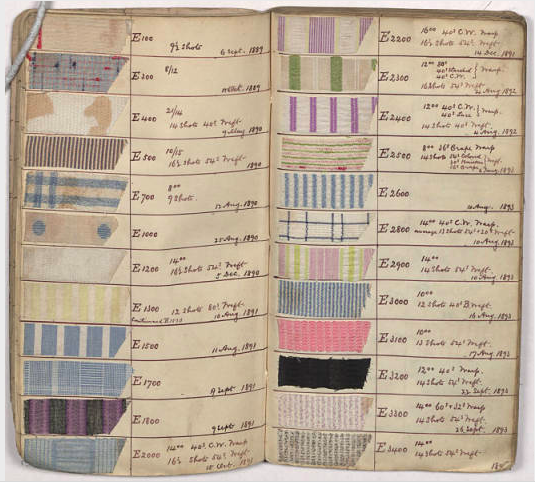 E100
9½ Shots 6 Sept. 1889
E300
8/12
1889
E400
21/14
14 Shots 40s Weft.
9 May 1890
E500
10/15
16½ Shots 54s Weft.
1890
E700
800
9 Shots.
12 Aug. 1890
E1000
25 Aug. 1890
E1200
1400
16½ Shots 54s Weft.
5 Dec. 1890
E1300
12 Shots 80s Weft.
10 Aug. 1891
E1500
11 Aug. 1891
E1700
9 Sept. 1891
E1800
9 Sept. 1891
E2000
1400 40s C.W. Warp
16½ Shots 54s Weft.
15 Oct. 1891
E2200
1600 40s C.W. Warp
16½ Shots 54s Weft.
14 Dec. 1891
E2300
1200 80s
40s C.W. } Warp
16 Shots 54s Weft
Aug. 1892
E2400
1200 40s C.W. } Warp
40s
14 Shots 40s Weft.
4 Aug. 1892
E2500
800 36s Crape Warp
14 Shots 54s Colored
Weft
1893
E2600
Aug. 1893
E2800
1400 40s C.W. Warp.
average 13 Shots 54s + 20s Weft.
10 Aug. 1893
E2900
1400
14 Shots 54s Weft.
10 Aug. 1893
E3000
1000
12 Shots 40s B Weft.
16 Aug. 1893
E3100
1000
13 Shots 54s Weft.
17 Aug. 1893
E3200
1200 40s Warp.
14 Shots 54s Weft.
22 Sept. 1893
E3300
1400 60s + 32s Warp
14 Shots 54s Weft.
26 Sept. 1893
E3400
1400
14 Shots 54s Weft.